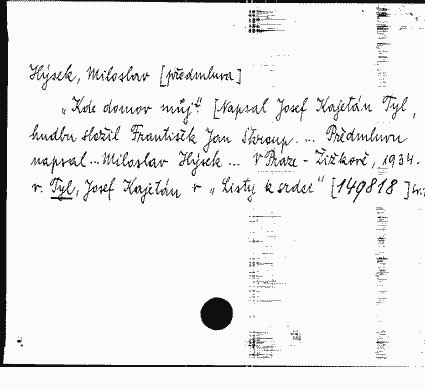 Hýsek, Miloslav [předmluva]
„Kde domov můj?" [Napsal Josef Kajetán Tyl,
hudbu složil František Jan Škroup. ... Předmluvu
napsal ... Miloslav Hýsek ... V Praze - Žižkově, 1934.
v. Tyl, Josef Kajetán v „Listy k srdci" [149818]